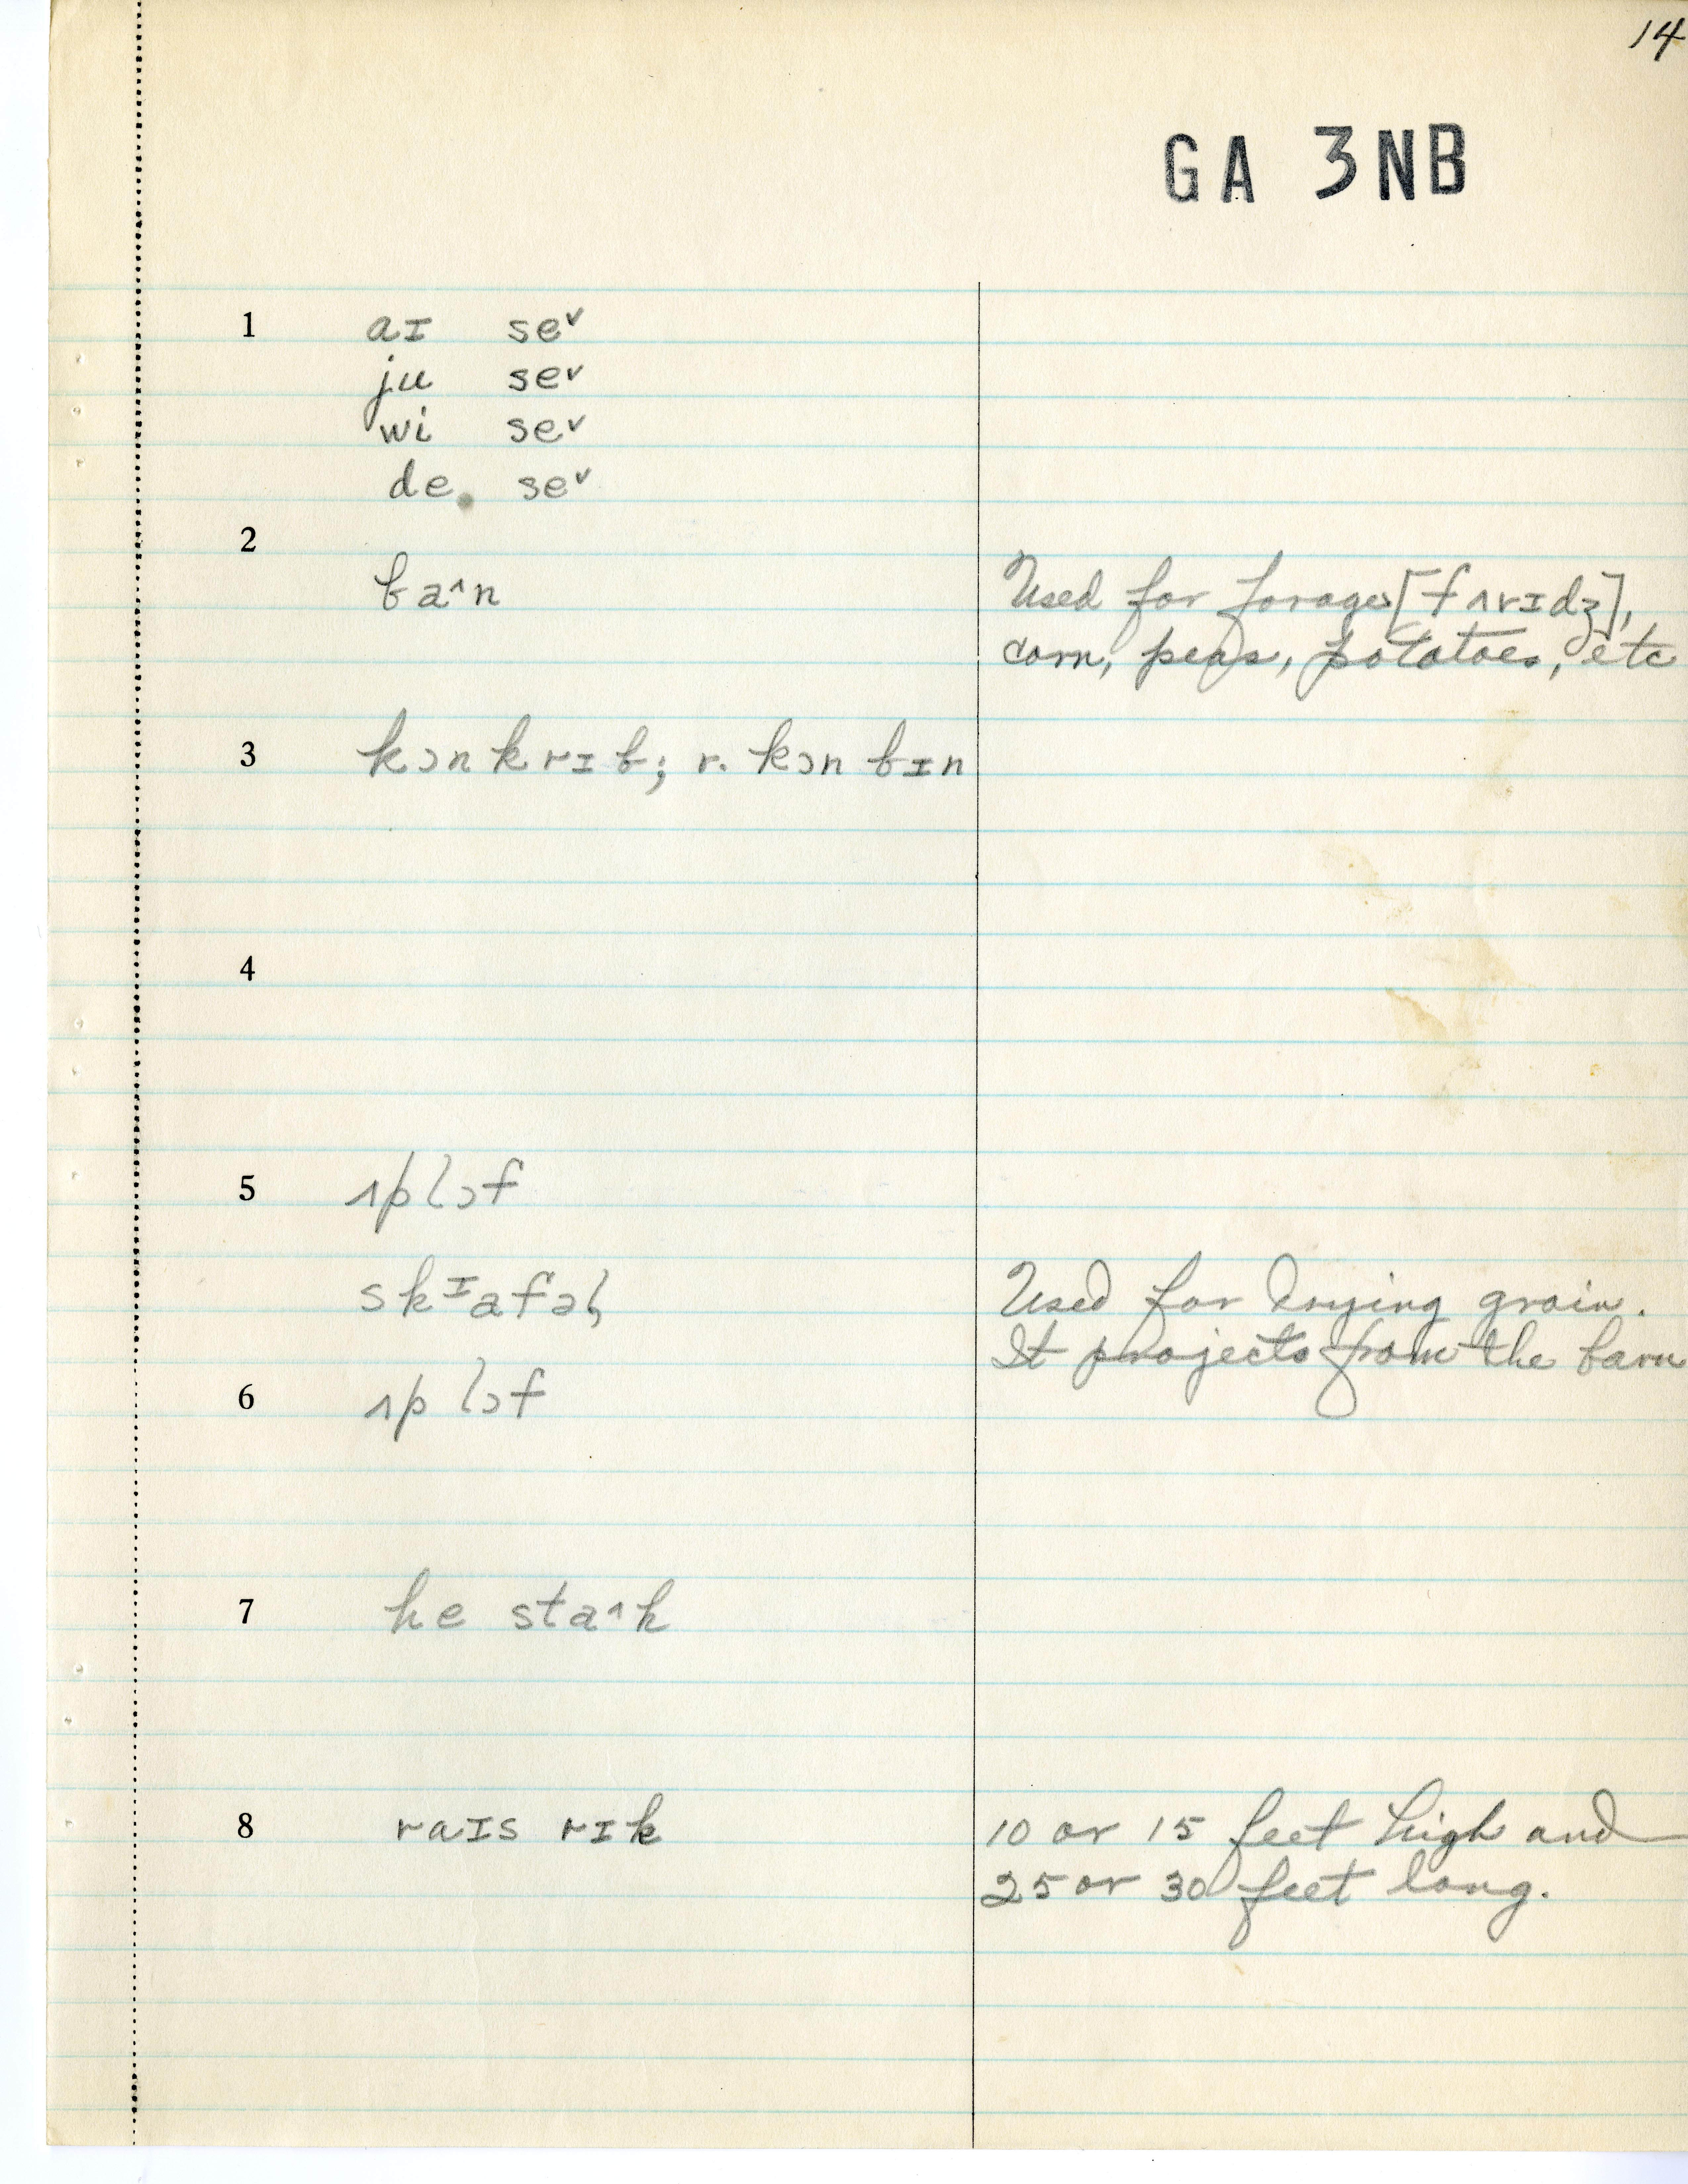 14
GA 3NB
1 aɪ se˅
ju se˅
wi se˅
de. se˅
2
ba˄n Used for forage [fʌrɪdʒ],
corn, peas, potatoes, etc
3 kɔnkrɪb; r. kɔn bɪn
4
5 ʌplɔf
skɪafəl Used for drying grain.
It projects from the barn
6 ʌp lɔf
7 he sta˄k
8 raɪs rɪk 10 or 15 feet high and
25 or 30 feet long.